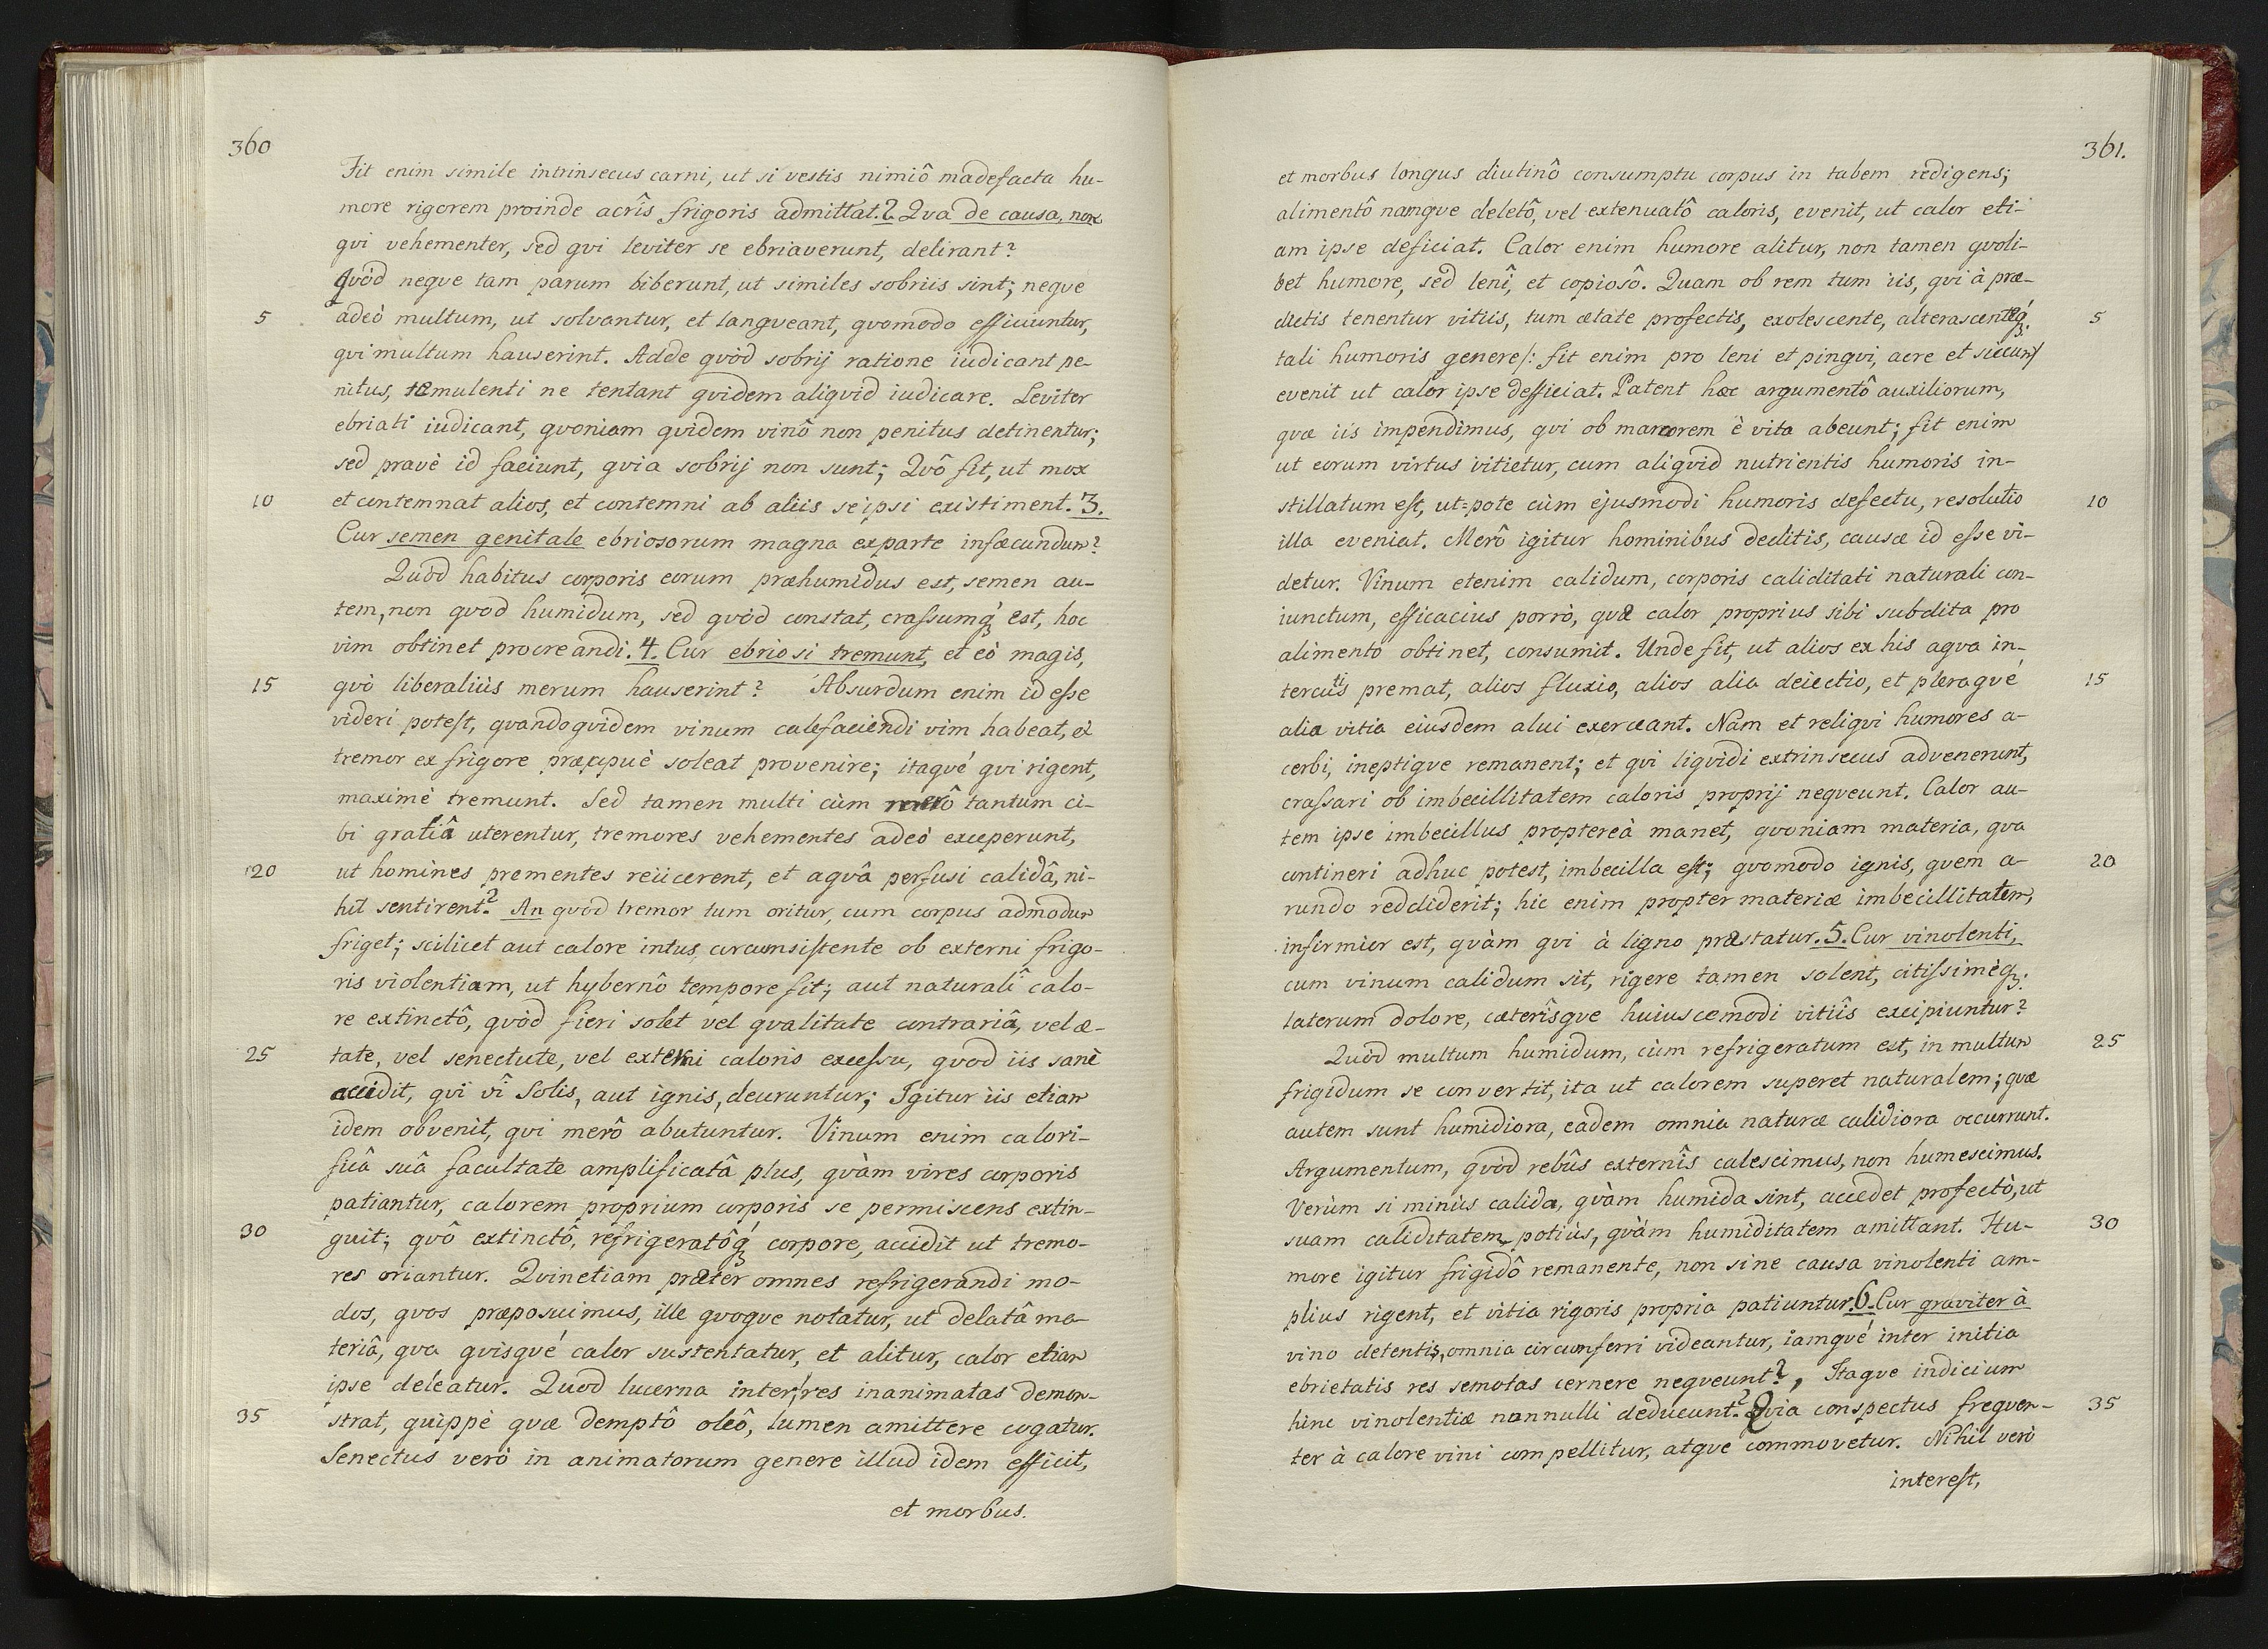 360
Fit enim simile intrinsecus carni, ut si vestis nimiô madefacta hu-
more rigorem proinde acrîs frigoris admittat. 2. Qva de causa, non
qvi vehementer, sed qvi leviter se ebriaverunt, delirant?
Qvòd neqve tam parum biberunt, ut similes sobriis sint; neqve
5 adeò multum, ut solvantur, et langveant, qvomodo efficiuntur,
qvi multum hauserint. Adde qvòd sobrij ratione iudicant pe-
nitus, temulenti ne tentant qvidem aliqvid iudicare. Leviter
ebriati iudicant, qvoniam qvidem vinô non penitus detinentur;
sed pravè id faciunt, qvia sobrij non sunt; Qvô fit, ut mox
10 et contemnat alios, et contemni ab aliis seipsi existiment. 3.
Cur semen genitale ebriosorum magna ex parte infæcundum?
Qvòd habitus corporis eorum præhumidus est, semen au-
tem, non qvod humidum, sed qvòd constat, crassumq́ꝫ est, hoc
vim obtinet procreandi. 4. Cur ebriosi tremunt, et eò magis,
15 qvò liberaliùs merum hauserint? Absurdum enim id esse
videri potest, qvandoqvidem vinum calefaciendi vim habeat, et
tremor ex frigore præcipuè soleat provenire; itaqvé qvi rigent,
maximè tremunt. Sed tamen multi cùm merô tantum ci-
bi gratiâ uterentur, tremores vehementes adeò exceperunt,
20 ut homines prementes reiicerent, et aqvâ perfusi calidâ, ni-
hil sentirent? An qvòd tremor tum oritur, cum corpus admodum
friget; scilicet aut calore intus circumsistente ob externi frigo-
ris violentiam, ut hybernô tempore fit; aut naturalî calo-
re extinctô, qvòd fieri solet vel qvalitate contrariâ, vel æ-
25 tate, vel senectute, vel externi caloris excessu, qvod iis sanè
accidit, qvi vî Solis, aut ignis, deuruntur; Igitur iis etiam
idem obvenit, qvi merô abutuntur. Vinum enim calori-
ficâ suâ facultate amplificatâ plus, qvàm vires corporis
patiantur, calorem proprium corporis se permiscens extin-
30 guit; qvô extinctô, refrigeratôq́ꝫ corpore, accidit ut tremo-
res oriantur. Qvinetiam præter omnes refrigerandi mo-
dos, qvos præposuimus, ille qvoqve notatur, ut delatâ ma-
teriâ, qva qvisqvé calor sustentatur, et alitur, calor etiam
ipse deleatur. Quod lucerna inter res inanimatas demon-
35 strat, quippè qvæ demptô oleô, lumen amittere cogatur.
Senectus verò in animatorum genere illud idem efficit,
et morbus.
361.
et morbus longus diutinô consumptu corpus in tabem redigens;
alimentô namqve deletô, vel extenuatô caloris, evenit, ut calor eti-
am ipse deficiat. Calor enim humore alitur, non tamen qvoli-
bet humore, sed lenî, et copiosô. Quam ob rem tum iis, qvi à præ-
5 dictis tenentur vitiis, tum ætate profectis, exolescente, alterascenteq́ꝫ.
tali humoris genere/: fit enim pro leni et pingvi, acre et siccum/
evenit ut calor ipse defficiat. Patent hæc argumentô auxiliorum,
qvæ iis impendimus, qvi ob marcorem è vita abeunt; fit enim
ut eorum virtus vitietur, cum aliqvid nutrientis humoris in-
10 stillatum est, ut=pote cùm ejusmodi humoris defectu, resolutio
illa eveniat. Merô igitur hominibus deditis, causæ id esse vi-
detur. Vinum etenim calidum, corporis caliditati naturali con-
iunctum, efficacius porrò, qvæ calor proprius sibi subdita pro
alimento obtinet, consumit. Unde fit, ut alios ex his aqva in-
15 tercutis premat, alios fluxio, alios alia deiectio, et pleraqve
alia vitia eiusdem alui exerceant. Nam et reliqvi humores a-
cerbi, ineptiqve remanent; et qvi liqvidi extrinsecus advenerunt,
crassari ob imbecillitatem caloris proprij neqveunt. Calor au-
tem ipse imbecillus proptereà manet, qvoniam materia, qva
20 contineri adhuc potest, imbecilla est; qvomodo ignis, qvem a-
rundo reddiderit; hic enim propter materiæ imbecillitatem,
infirmior est, qvàm qvi à ligno præstatur. 5. Cur vinolenti,
cum vinum calidum sit, rigere tamen solent, citissimèqꝫ.
laterum dolore, cæterîsqve huiuscemodi vitiîs excipiuntur?
25 Quòd multum humidum, cùm refrigeratum est, in multum
frigidum se convertit, ita ut calorem superet naturalem; qvæ
autem sunt humidiora, eadem omnia naturæ calidiora occurrunt.
Argumentum, qvòd rebûs externîs calescimus, non humescimus.
Verùm si minùs calida, qvàm humida sint, accedet profectò, ut
30 suam caliditatem potiùs, qvàm humiditatem amittant. Hu-
more igitur frigidô remanente, non sine causa vinolenti am-
plius rigent, et vitia rigoris propria patiuntur. 6. Cur graviter à
vino detentis, omnia circumferri videantur, iamqvé inter initia
ebrietatis res semotas cernere neqveunt?, Itaqve indicium
35 hinc vinolentiæ nonnulli deducunt? Qvia conspectus freqven-
ter à calore vini compellitur, atqve commovetur. Nihil verò
interest,